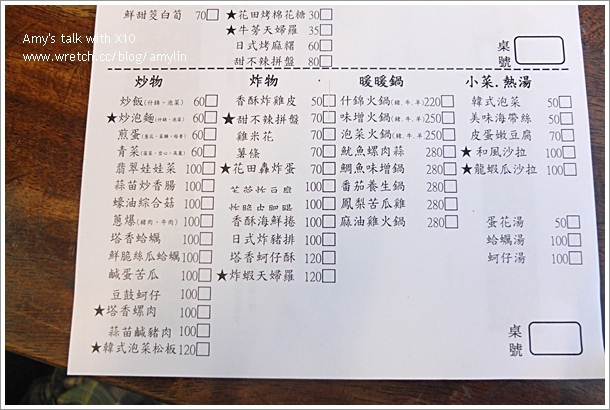 Amy's talk with X10
www.wretch.cc/blog/amylin
鮮甜茭白筍 70
★花田烤棉花糖 30
★牛蒡天婦羅 35
日式烤麻糬 60
甜不辣拼盤 80
桌號
炒物
炒飯(什錦、泡菜) 60
★炒泡麵(什錦、泡菜) 60
煎蛋 60
青菜 60
翡翠娃娃菜 100
蒜苗炒香腸 100
蠔油綜合菇 100
蔥爆(豬肉、牛肉) 100
塔香蛤蠣 100
鮮脆絲瓜蛤蠣 100
鹹蛋苦瓜 100
豆鼓蚵仔 100
★塔香螺肉 100
蒜苗鹹豬肉 100
★韓式泡菜松板 120
炸物
香酥炸雞皮 50
★甜不辣拼盤 70
雞米花 70
薯條 70
★花田轟炸蛋 70
100
100
香酥海鮮捲 100
日式炸豬排 100
塔香蚵仔酥 120
★炸蝦天婦羅 120
暖暖鍋
什錦火鍋(豬.牛.羊) 220
味增火鍋(豬.牛.羊) 250
泡菜火鍋(豬.牛.羊) 250
魷魚螺肉蒜 280
鯛魚味增鍋 280
番茄養生鍋 280
鳳梨苦瓜雞 280
麻油雞火鍋 280
小菜.熱湯
韓式泡菜 50
美味海帶絲 50
皮蛋嫩豆腐 70
★和風沙拉 100
★龍蝦沙拉 100
蛋花湯 50
蛤蠣湯 100
蚵仔湯 100
桌號